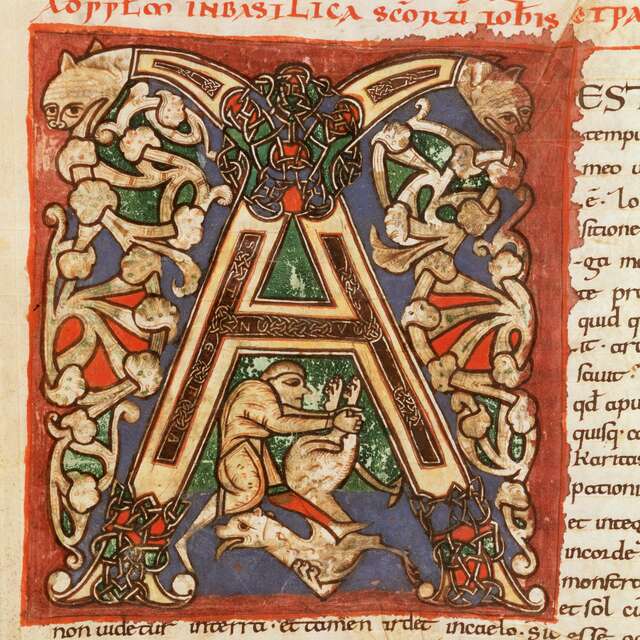 AD PPLM IN BASILICA SCORŪ IOHIS ET PA
A
EST
tempt
meo u
ē. Lo
sitione
ga me
te pro
quid q
it. cari
sauit
qđ apu
quisq.
Karitas
pationi
et integ
incorde
monstra
et sol cu
non uidetur interra. et tamen ardet incaelo. Si esse